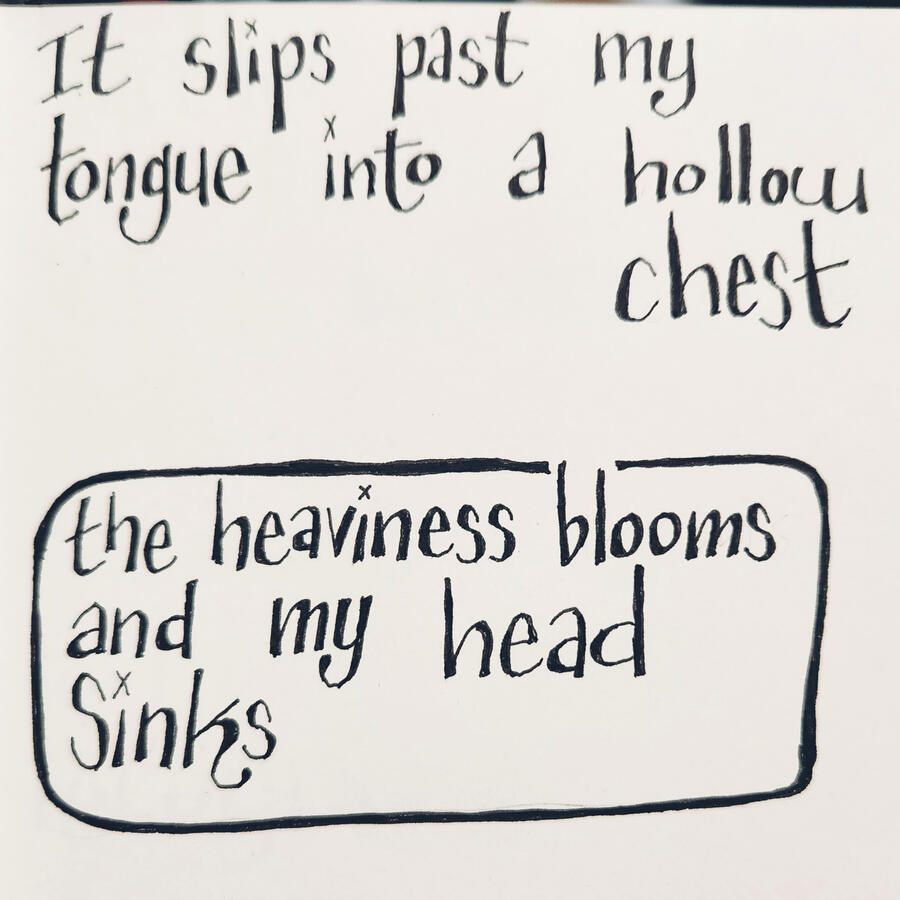 It slips past my
tongue into a hollow
chest
the heaviness blooms
and my head
Sinks